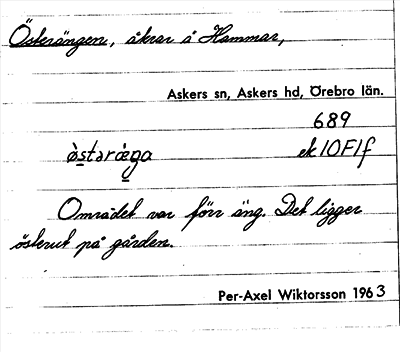 Österängen, åkrar å Hammar,
Askers sn, Askers hd, Örebro län.
689
ek 10F1f
Området var förr äng. Det ligger
österut på gården.
Per-Axel Wiktorsson 1963